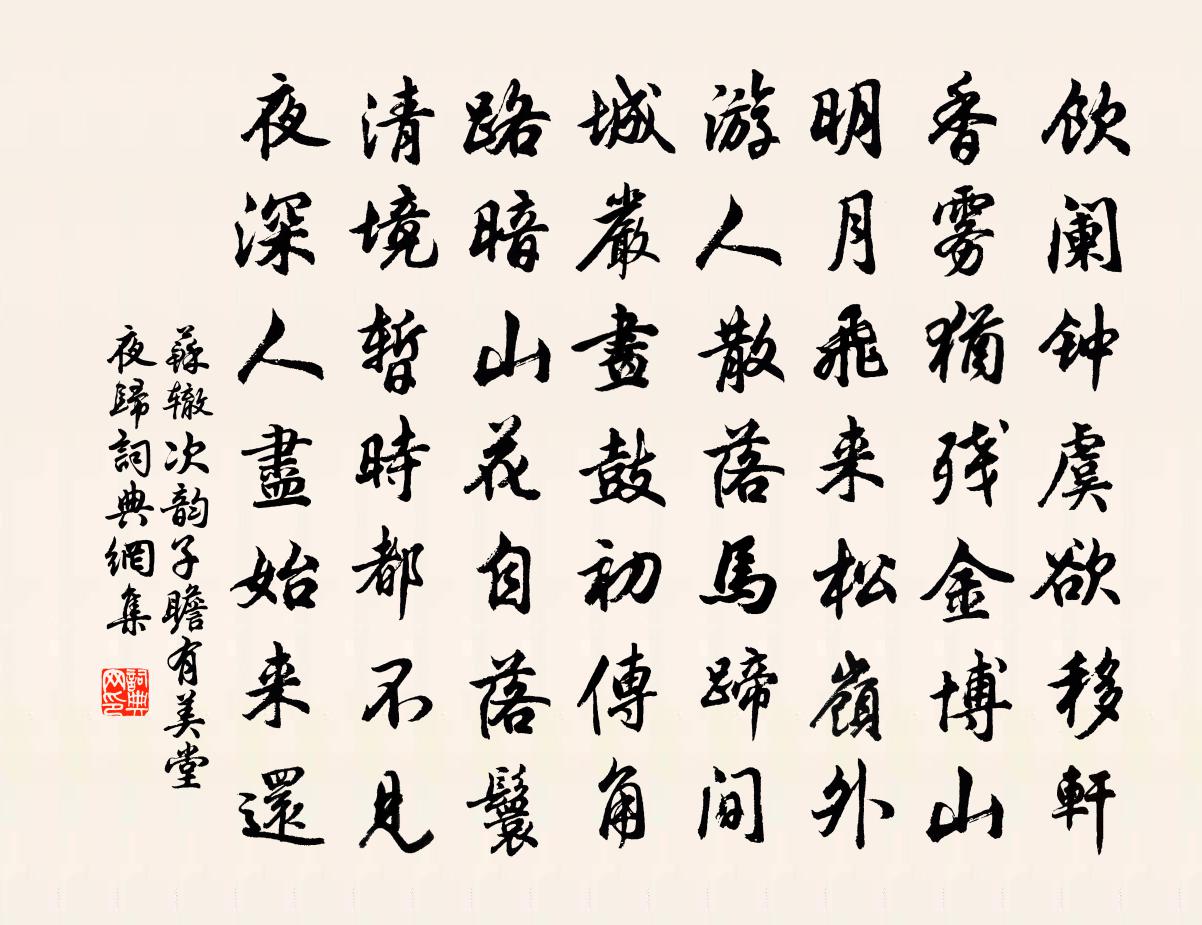 饮阑钟虞欲移軒
香雾犹残金博山
明月飛来松嶺外
游人散落馬蹄间
城嚴畫鼓初傳角
路暗山花自落鬟
清境暫時都不見
夜深人盡始来還
蘇辙次韵子瞻有美堂
夜歸詞典網集
詞典网印